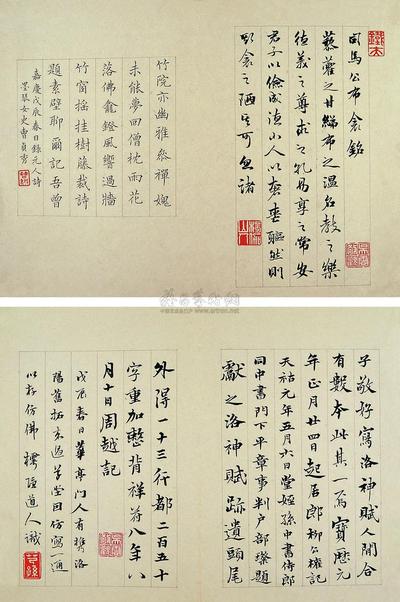 司馬公布衾銘
藜藿之甘綈布之溫名教之樂
德義之尊求之孔易享之常安
君子以儉成德小人以奢喪軀然則
斯衾之陋其可忽諸
竹院亦幽雅叅禪媿
未能夢回僧枕雨花
落佛龕鐙風響過牆
竹窗搖挂樹藤裁詩
題素壁聊爾記吾曾
嘉慶戊辰春日錄元人詩
墨琴女史曹貞秀
子敬好寫洛神賦人間合
有數本此其一焉寶歷元
年正月廿四日起居郎柳公權記
天祐元年五月六日堂姪孫中書侍郎
同中書門下平章事判户部璨題
獻之洛神賦跡遺頭尾
外得一十三行都二百五十
字重加裝背祥符八年八
月十日周越記
戊辰春日華亭門人有携洛
陽舊拓者過草堂回仿寫一通
以存仿佛 樗隱道人識